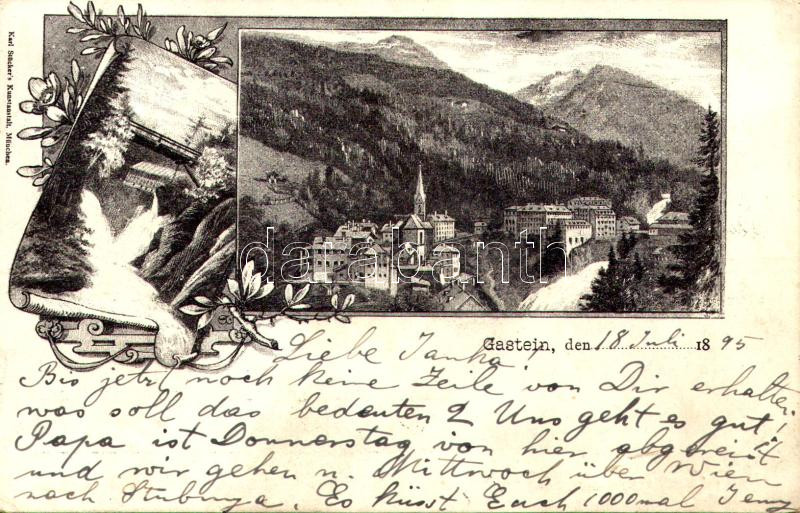 Karl Stücker's Kunstanstalt, München.
darabanth
Gastein, den 18 Juli 1895
Liebe Janka,
Bis jetzt noch keine Zeile von Dir erhalten,
was soll das bedeuten? Uns geht es gut!
Papa ist Donnerstag von hier abgereist
und wir gehen n. Mittwoch über Wien
nach Stubnya. Es küsst Euch 1000mal Jenny